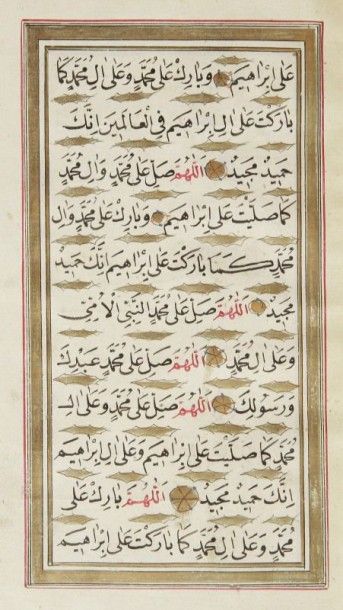 عَلَى اِبْرَاهِيمَ وَبَارِكْ عَلَى مُحَمَّدٍ وَعَلَى اٰلِ مُحَمَّدٍ كَمَا
بَارَكْتَ عَلَى اٰلِ اِبْرَاهِيمَ فِي الْعَالَمِينَ اِنَّكَ
حَمِيدٌ مَجِيدٌ اَللّٰهُمَّ صَلِّ عَلَى مُحَمَّدٍ وَاٰلِ مُحَمَّدٍ
كَمَا صَلَّيْتَ عَلَى اِبْرَاهِيمَ وَبَارِكْ عَلَى مُحَمَّدٍ وَاٰلِ
مُحَمَّدٍ كَمَا بَارَكْتَ عَلَى اِبْرَاهِيمَ اِنَّكَ حَمِيدٌ
مَجِيدٌ اَللّٰهُمَّ صَلِّ عَلَى مُحَمَّدٍ النَّبِيِّ الْاُمِّيِّ
وَعَلَى اٰلِ مُحَمَّدٍ اَللّٰهُمَّ صَلِّ عَلَى مُحَمَّدٍ عَبْدِكَ
وَرَسُولِكَ اَللّٰهُمَّ صَلِّ عَلَى مُحَمَّدٍ وَعَلَى اٰلِ
مُحَمَّدٍ كَمَا صَلَّيْتَ عَلَى اِبْرَاهِيمَ وَعَلَى اٰلِ اِبْرَاهِيمَ
اِنَّكَ حَمِيدٌ مَجِيدٌ اَللّٰهُمَّ بَارِكْ عَلَى
مُحَمَّدٍ وَعَلَى اٰلِ مُحَمَّدٍ كَمَا بَارَكْتَ عَلَى اِبْرَاهِيمَ